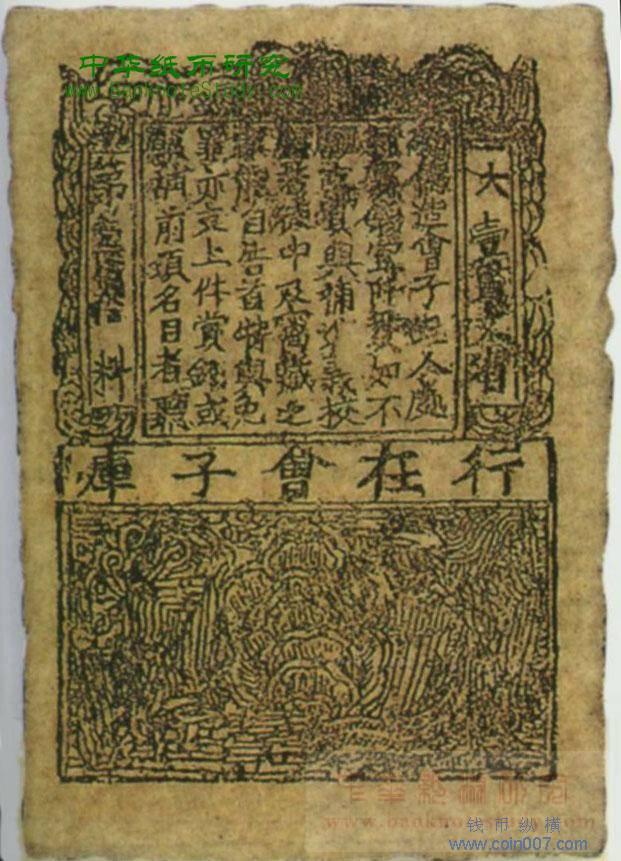 中华纸币研究
www.banknotestudy.com
大壹貫文省
偽造會子犯人處
賞錢壹阡貫如不
願支賞與補進義校
尉若徒中及窩藏之
家能自告首特與免
罪亦支上件賞錢或
願補前項名目者聽
第壹百拾料
行在會子庫
www.banknotestudy.com
钱币纵横
www.coin007.com